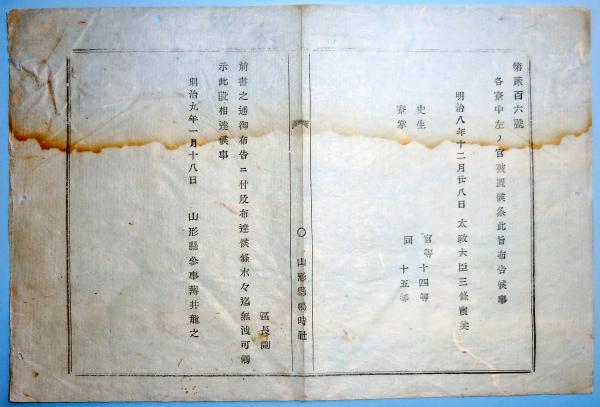 第貳百六號
各寮中左ノ官被置候条此旨布告候事
明治八年十二月廿八日 太政大臣三條實美
史生 官等十四等
寮掌 同 十五等
〇 山形縣鶴時社
區長副
前書之通御布告ニ付及布達候條末々迄無洩可觸
示此段相達候事
明治九年一月十八日 山形縣參事薄井龍之